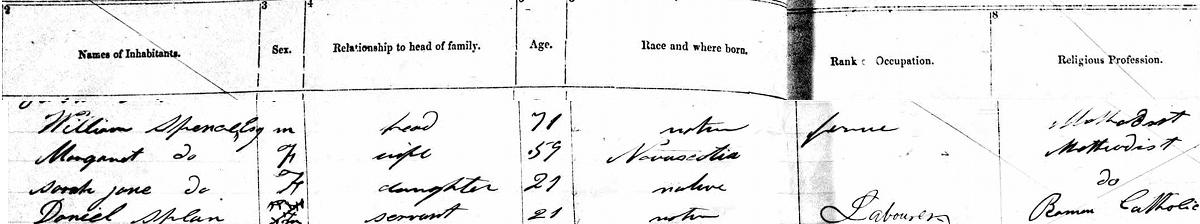 2 3 4 8
Names of Inhabitants. Sex. Relationship to head of family. Age. Race and where born. Rank Occupation. Religious Profession.
William Spence, Esq m head 71 native Methodist
Margaret do F wife 59 Novascotia Methodist
sarah jane do F daughter 21 native do
Daniel servant 21 native Labourer Roman Catholic